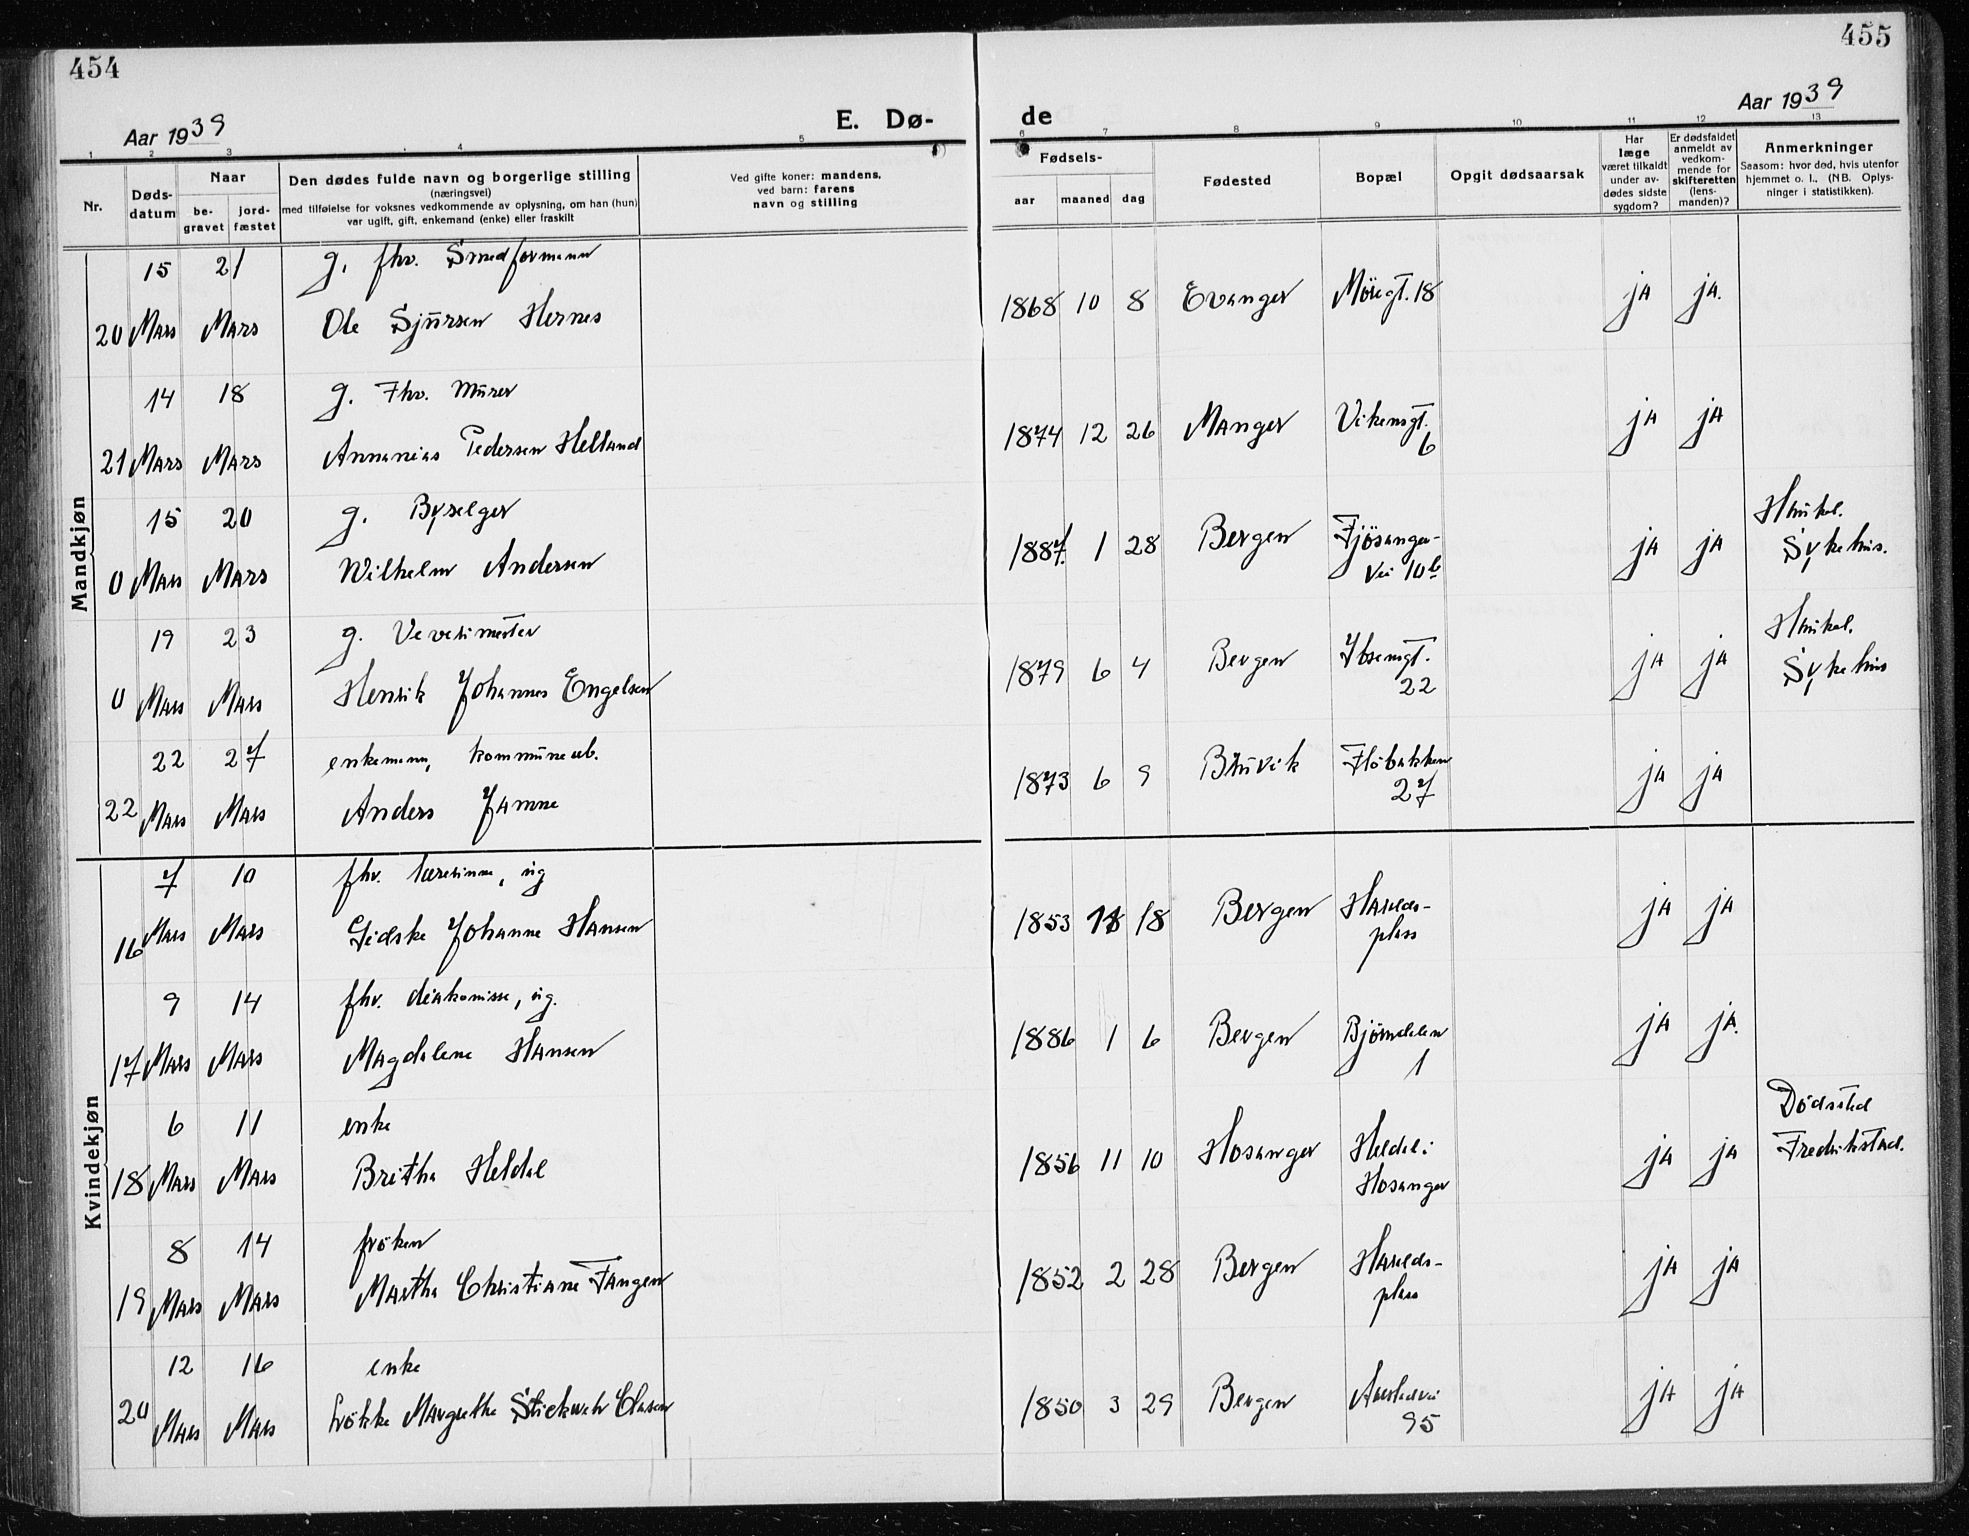 454
455
Aar 1939
E. Dø-
de
Aar 1939
1 2 3 4 5 6 7 8 9 10 11 12 13
Nr.
Døds-
datum
Naar
be-
gravet
jord-
fæstet
Den dødes fulde navn og borgerlige stilling
(næringsvei)
med tilføielse for voksnes vedkommende av oplysning, om han (hun)
var ugift, gift, enkemand (enke) eller fraskilt
Ved gifte koner: mandens,
ved barn: farens
navn og stilling
Fødsels-
aar maaned dag
Fødested
Bopæl
Opgit dødsaarsak
Har
læge
været tilkaldt
under av-
dødes sidste
sygdom?
Er dødsfaldet
anmeldt av
vedkom-
mende for
skifteretten
(lens-
manden)?
Anmerkninger
Saasom: hvor død, hvis utenfor
hjemmet o. l., (NB. Oplys-
ninger i statistikken).
Mandkjøn
15 21 g. fhv. Smedformann
20 Mars Mars Ole Sjursen Hernes 1868 10 8 Evanger Møregt. 18 ja ja.
14 18 g. Fhv. Murer
21 Mars Mars Annanias Pedersen Helland 1874 12 26 Manger Vikensgt.
6 ja ja
15 20 g. Byselger
0 Mars Mars Wilhelm Andersen 1887. 1 28 Bergen Fjösanger-
vei 10b ja ja Haukel.
Sykehus.
19 23 g.
0 Mars Mars Henrik Johannes Engelsen 1879 6 4 Bergen Ibsensgt.
22 ja ja Haukel.
Sykehus
22 27 enkemann, kommunearb.
22 Mars Mars Anders Jamne 1873 6 9 Bruvik Flöbakken
27 ja ja
Kvindekjøn
7 10 fhv. lærerinne, ug
16 Mars Mars Gidske Johanne Hansen 1853 18 Bergen Haralds-
plass ja ja
9 14 fhv. diakonisse, ug.
17 Mars Mars Magdalene Hansen 1886 1 6 Bergen Bjørndalen
1 ja ja.
6 11 enke
18 Mars Mars Britha Heldal 1856 11 10 Hosanger Heldal i
Hosanger ja ja Dödssted
Fredrikstad.
8 14 fröken
19 Mars Mars Martha Christiane Fangen 1852 2 28 Bergen Haralds-
plass ja ja
12 16 enke
20 Mars Mars Margrethe Olasen 1850 3 29 Bergen
95 ja ja